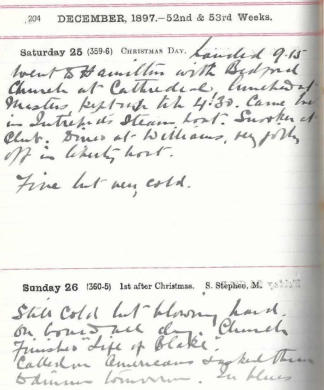 204 DECEMBER, 1897.—52nd & 53rd Weeks.
Saturday 25 (359-6) CHRISTMAS DAY. Landed 9.15
went to Hamilton with Bedford
Church at Cathedral, lunched at
Masters, kept up till 4.30. Came
in Intrepid's Steam boat. Snooker at
Club. Dined at Williams, very jolly
off in liberty boat.
Fine but very cold.
Sunday 26 (360-5) 1st after Christmas. S. Stephen, M.
Still cold but blowing hard.
On board all day. Church
Finished "Life of Blake".
Called on Americans & asked them
to dinner tomorrow. In blues